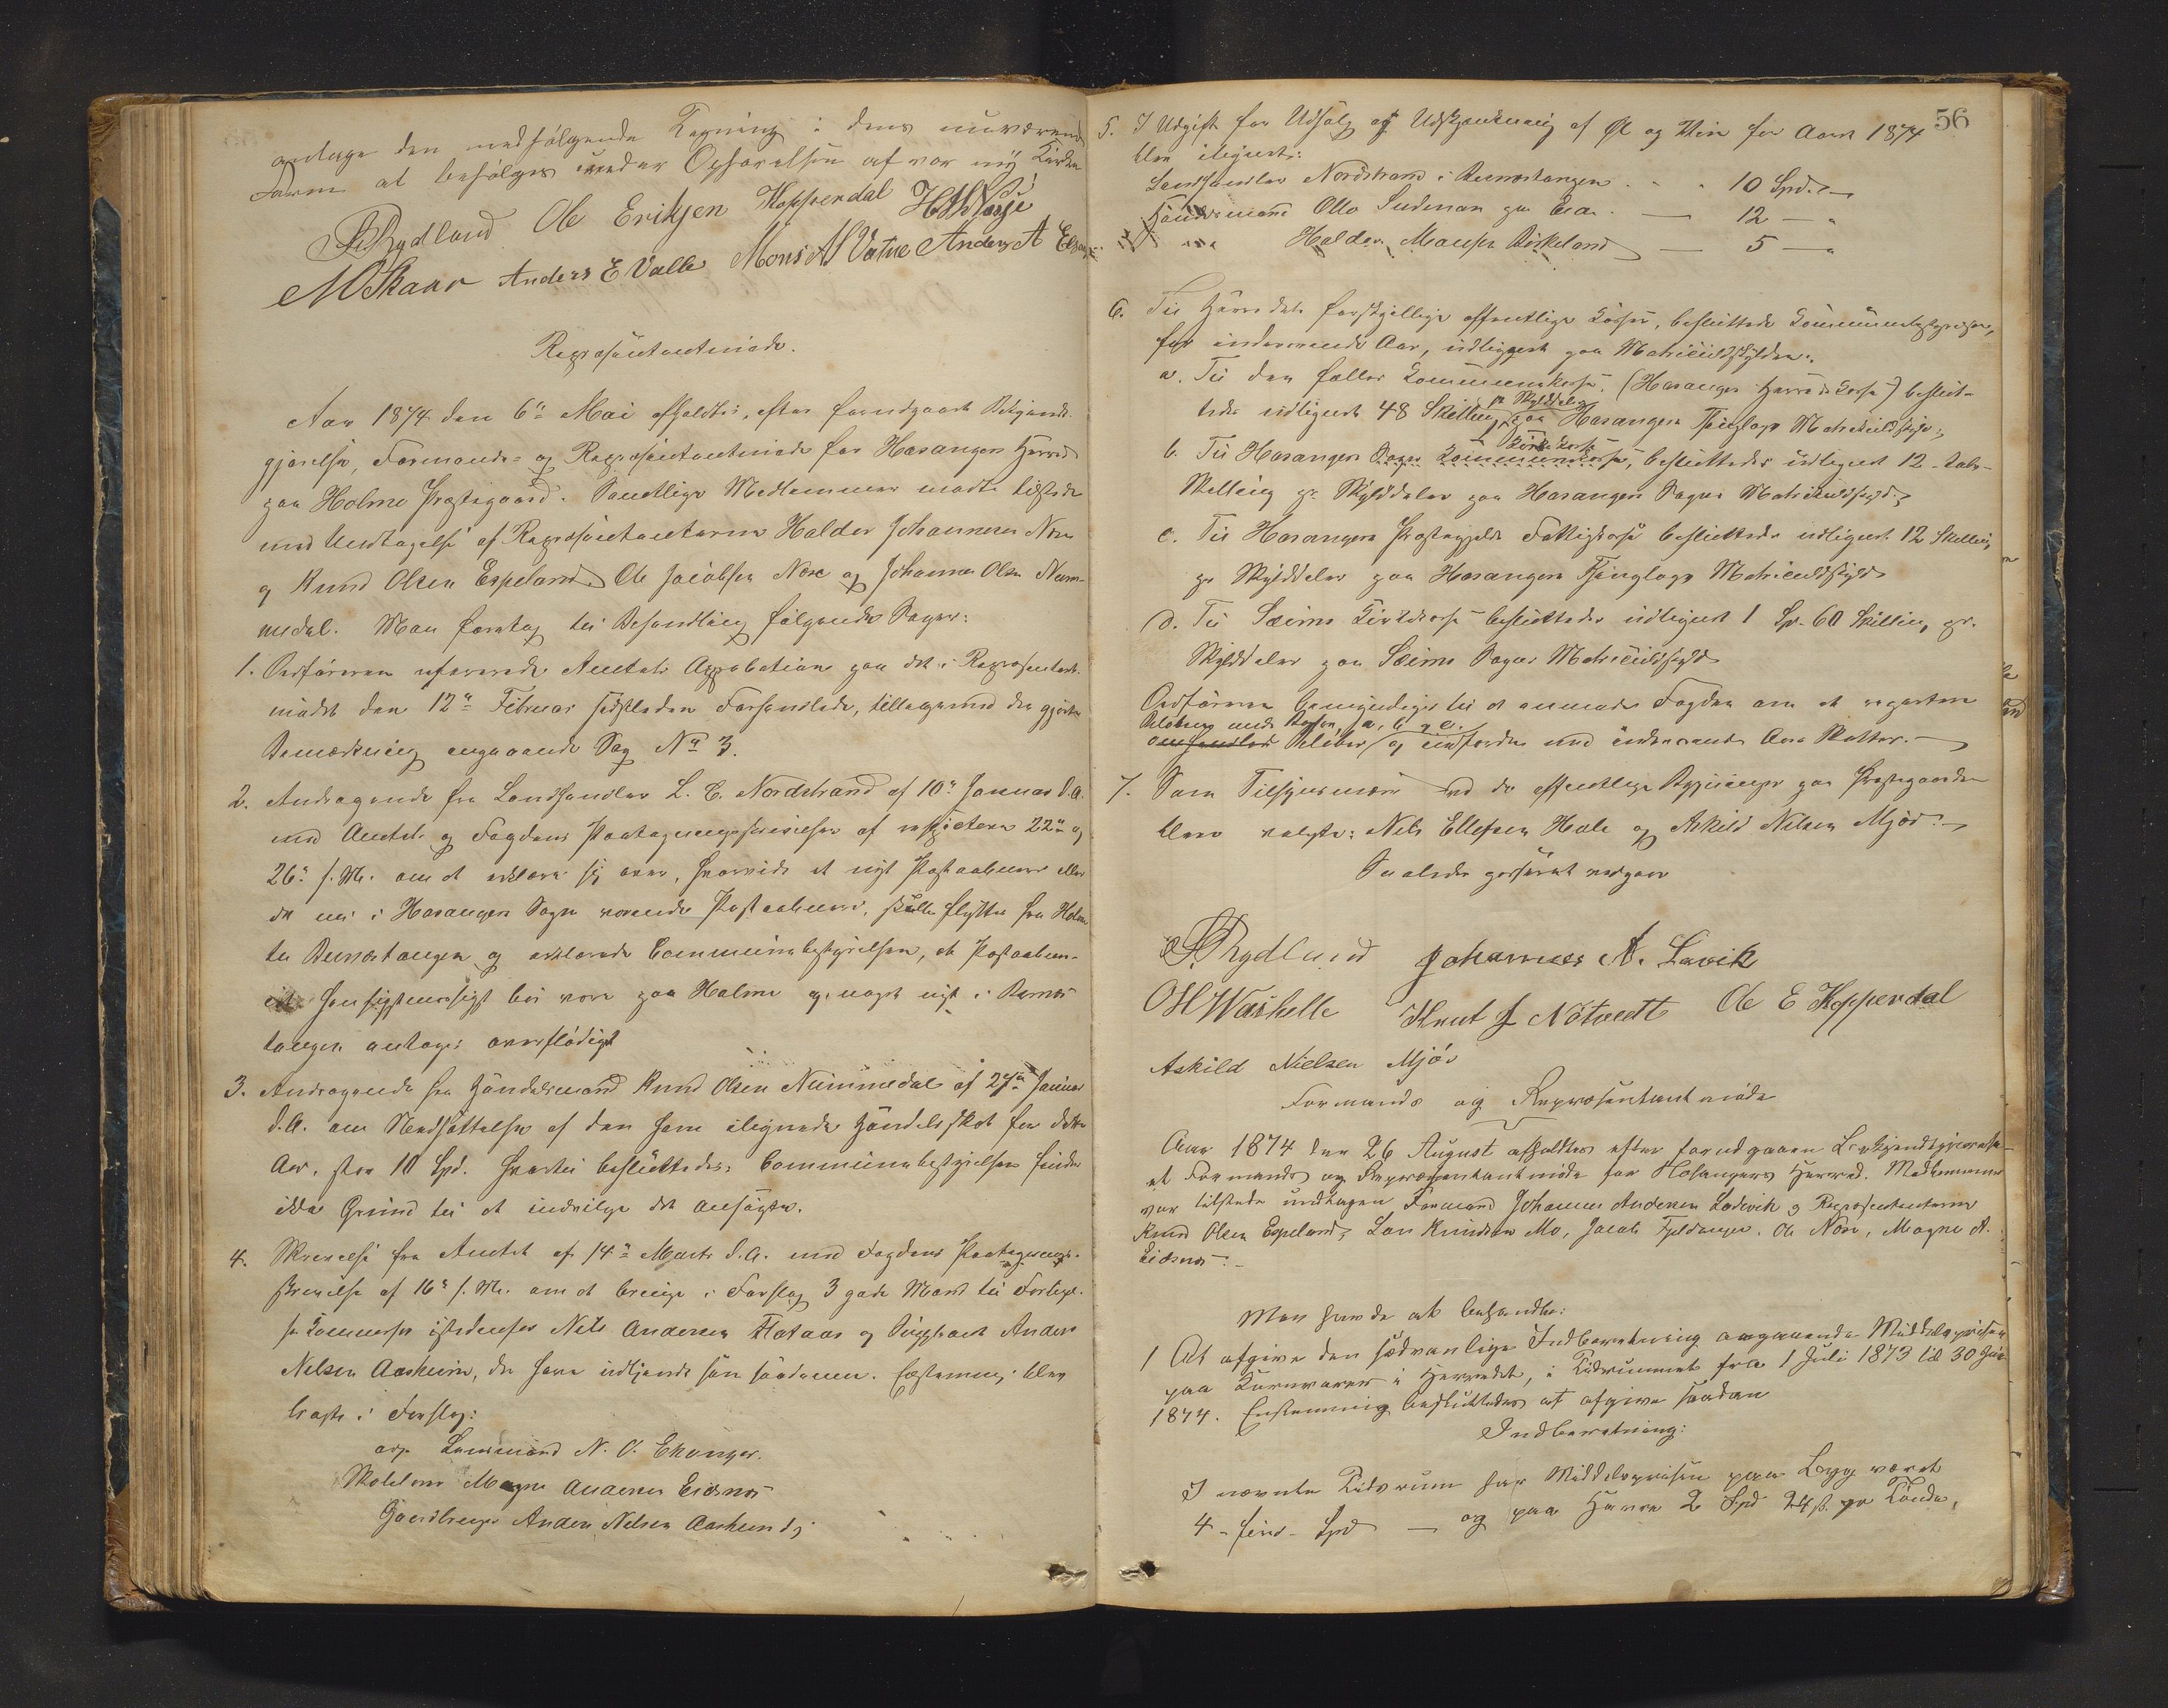 antage den medfølgende Tegning i dens nuværende
Form at befølges under Opførelsen af vor ny Kirke
Rydland Ole Eriksen Kopperdal
M Skaar Anders E. Valle Mons A Vatne Anders A
Repræsentantmøde.
Aar 1874 den 6te Mai afholdtes, efter forudgaaet Bekjendt-
gjørelse, Formands- og Repræsentantmøde for Hosangers Herred
paa Holme Præstegaard. Samtlige Medlemmer mødte tilstede
med Undtagelse af Repræsentanterne Haldor Johannesen
og Knud Olsen Espeland, Ole Jacobsen Nore og Johannes Olsen Num-
medal. Man foretog til Behandling følgende Sager:
1. Ordføreren refererede Amtets Approbation paa det i Repræsentant-
mødet den 12te Februar sidstleden Forhandlede, tilligemed den gjorte
Bemærkning angaaende Sag No 3.
2. Andragende fra Landhandler L. C. Nordstrand af 10de Januar d.A.
med Amtets og Fogdens Paategningsskrivelser af respective 22de og
26de s. M. om at erklære sig over, hvorvidt et nyt Postaabneri eller
det nu i Hosanger Sogn værende Postaabneri, skulle flyttes fra Holme
til Bernestangen og erklærede Communebestyrelsen, at Postaabne-
riet hensigtsmæssigt bør være paa Holme og noget nyt i Bernes-
tangen antages overflødigt
3. Andragende fra Handelsmand Knud Olsen Nummedal af 27de Januar
d.A. om Nedsættelse af den ham ilignede Handelsskat for dette
Aar, stor 10 Spd. Hvortil besluttedes: Communebestyrelsen finder
ikke Grund til at indvilge det ansøgte.
4. Skrivelse fra Amtet af 14de Marts d.A. med Fogdens Paategnings-
skrivelse af 16de s. M. om at bringe i Forslag 3 gode Mænd til Forligel-
ses Commissær istedenfor Nils Andersen Flataas og Suppleant Anders
Nelsen Aasheim, der have udtjent som saadanne. Eenstemmig blev
bragt i Forslag:
Lensmand N. O. Ekanger.
Skolelærer Magne Andersen Eidsnes
Gaardbruger Anders Nelsen Aasheim
56
5. I Udgift for Udsalg og Udskjænkning af Øl og Vin for Aaret 1874
blev ilignet:
Landhandler Nordstrand i Bernestangen 10 Spd.
Handelsmand Otto Sudman paa 12 —
Haldor Monsen Birkeland — 5 —
6. Til Herredets forskjellige offentlige Kasser, besluttede Communebestyrelsen,
for indeværende Aar, udlignet paa Matriculskylden:
a. Til den fælles Communekasse (Hosanger Herredskasse) beslut-
tedes udlignet 48 Skilling pr Skylddaler paa Hosangers Thinglags Matriculskyld;
b. Til Hosangers Sogns Kommunekasse, Kirkekasse besluttedes udlignet 12 - tolv -
Skilling pr Skylddaler paa Hosangers Sogns Matriculskyld;
c. Til Hosangers Præstegjelds Fattigkasse besluttedes udlignet 12 Skilling
pr Skylddaler paa Hosangers Thinglags Matriculskyld
d. Til Sæims Kirkekasse besluttedes udlignet 1 Sp. 60 Skilling pr.
Skylddaler paa Sæims Sogns Matriculskyld
Ordføreren bemyndiges til at anmode Fogden om at repartere
Beløbene under Posterne a, b og c.
omhandlede Beløber og indfordre med indeværende Aars Skatter.
7. Som Tilsynsmænd ved de offentlige Bygninger paa Præstegaarden
blev valgte: Nels Ellefsen Hole og Askild Nilsen Mjøs.
Saaledes passeret vedgaar
Rydland Johannes A. Lavik
O H Washelle Knut J Nötvedt Ole E Kopperdal
Askild Nielsen Mjøs
Formands og Repræsentantmøde
Aar 1874 den 26 August afholdtes efter forudgaaen Bekjendtgjørelse
et Formands og Repræsentantmøde for Hosangers Herred. Medlemmerne
var tilstede undtagen Formand Johannes Andersen Ladevik og Repræsentanterne
Knud Olsen Espeland, Lars Knudsen Mo, Jacob Fjeldanger, Ole Nore, Magne A.
Eidsnes.
Man havde at behandle:
1 At afgive den sædvanlige Indberetning angaaende Middelprisen
paa Kornvarer i Herredet, i Tidsrummet fra 1 Juli 1873 til 30 Juni
1874. Enstemmig besluttedes at afgive saadan
Indberetning:
I nævnte Tidsrum har Middelprisen paa Byg været
4 - fire - Spd — og paa Havre 2 Spd 24 s. pr Tønde,